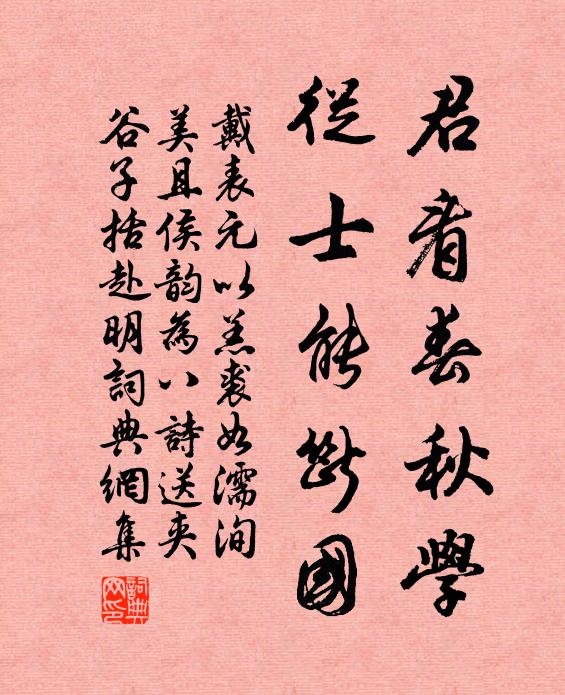 君看春秋學
從士能斷國
戴表元以羔裘如濡洵
美且侯韻為八詩送夾
谷子括赴明詞典網集
詞典網印